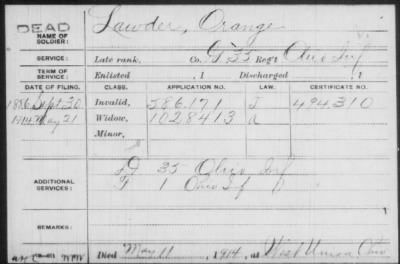 DEAD
NAME OF SOLDIER: Lawder, Orange
SERVICE: Late rank, Co. G, 35 Reg't Ohio Inf
TERM OF SERVICE: Enlisted , 1 Discharged , 1
DATE OF FILING. CLASS. APPLICATION NO. LAW. CERTIFICATE NO.
1886 Sept 30 Invalid, 586.171 J 494310
1914 May 21 Widow, 1028413 a
Minor,
ADDITIONAL SERVICES: G 35 Ohio Inf
1 Ohio Inf
REMARKS:
Died Mar 11, 1914, at West Union Ohio